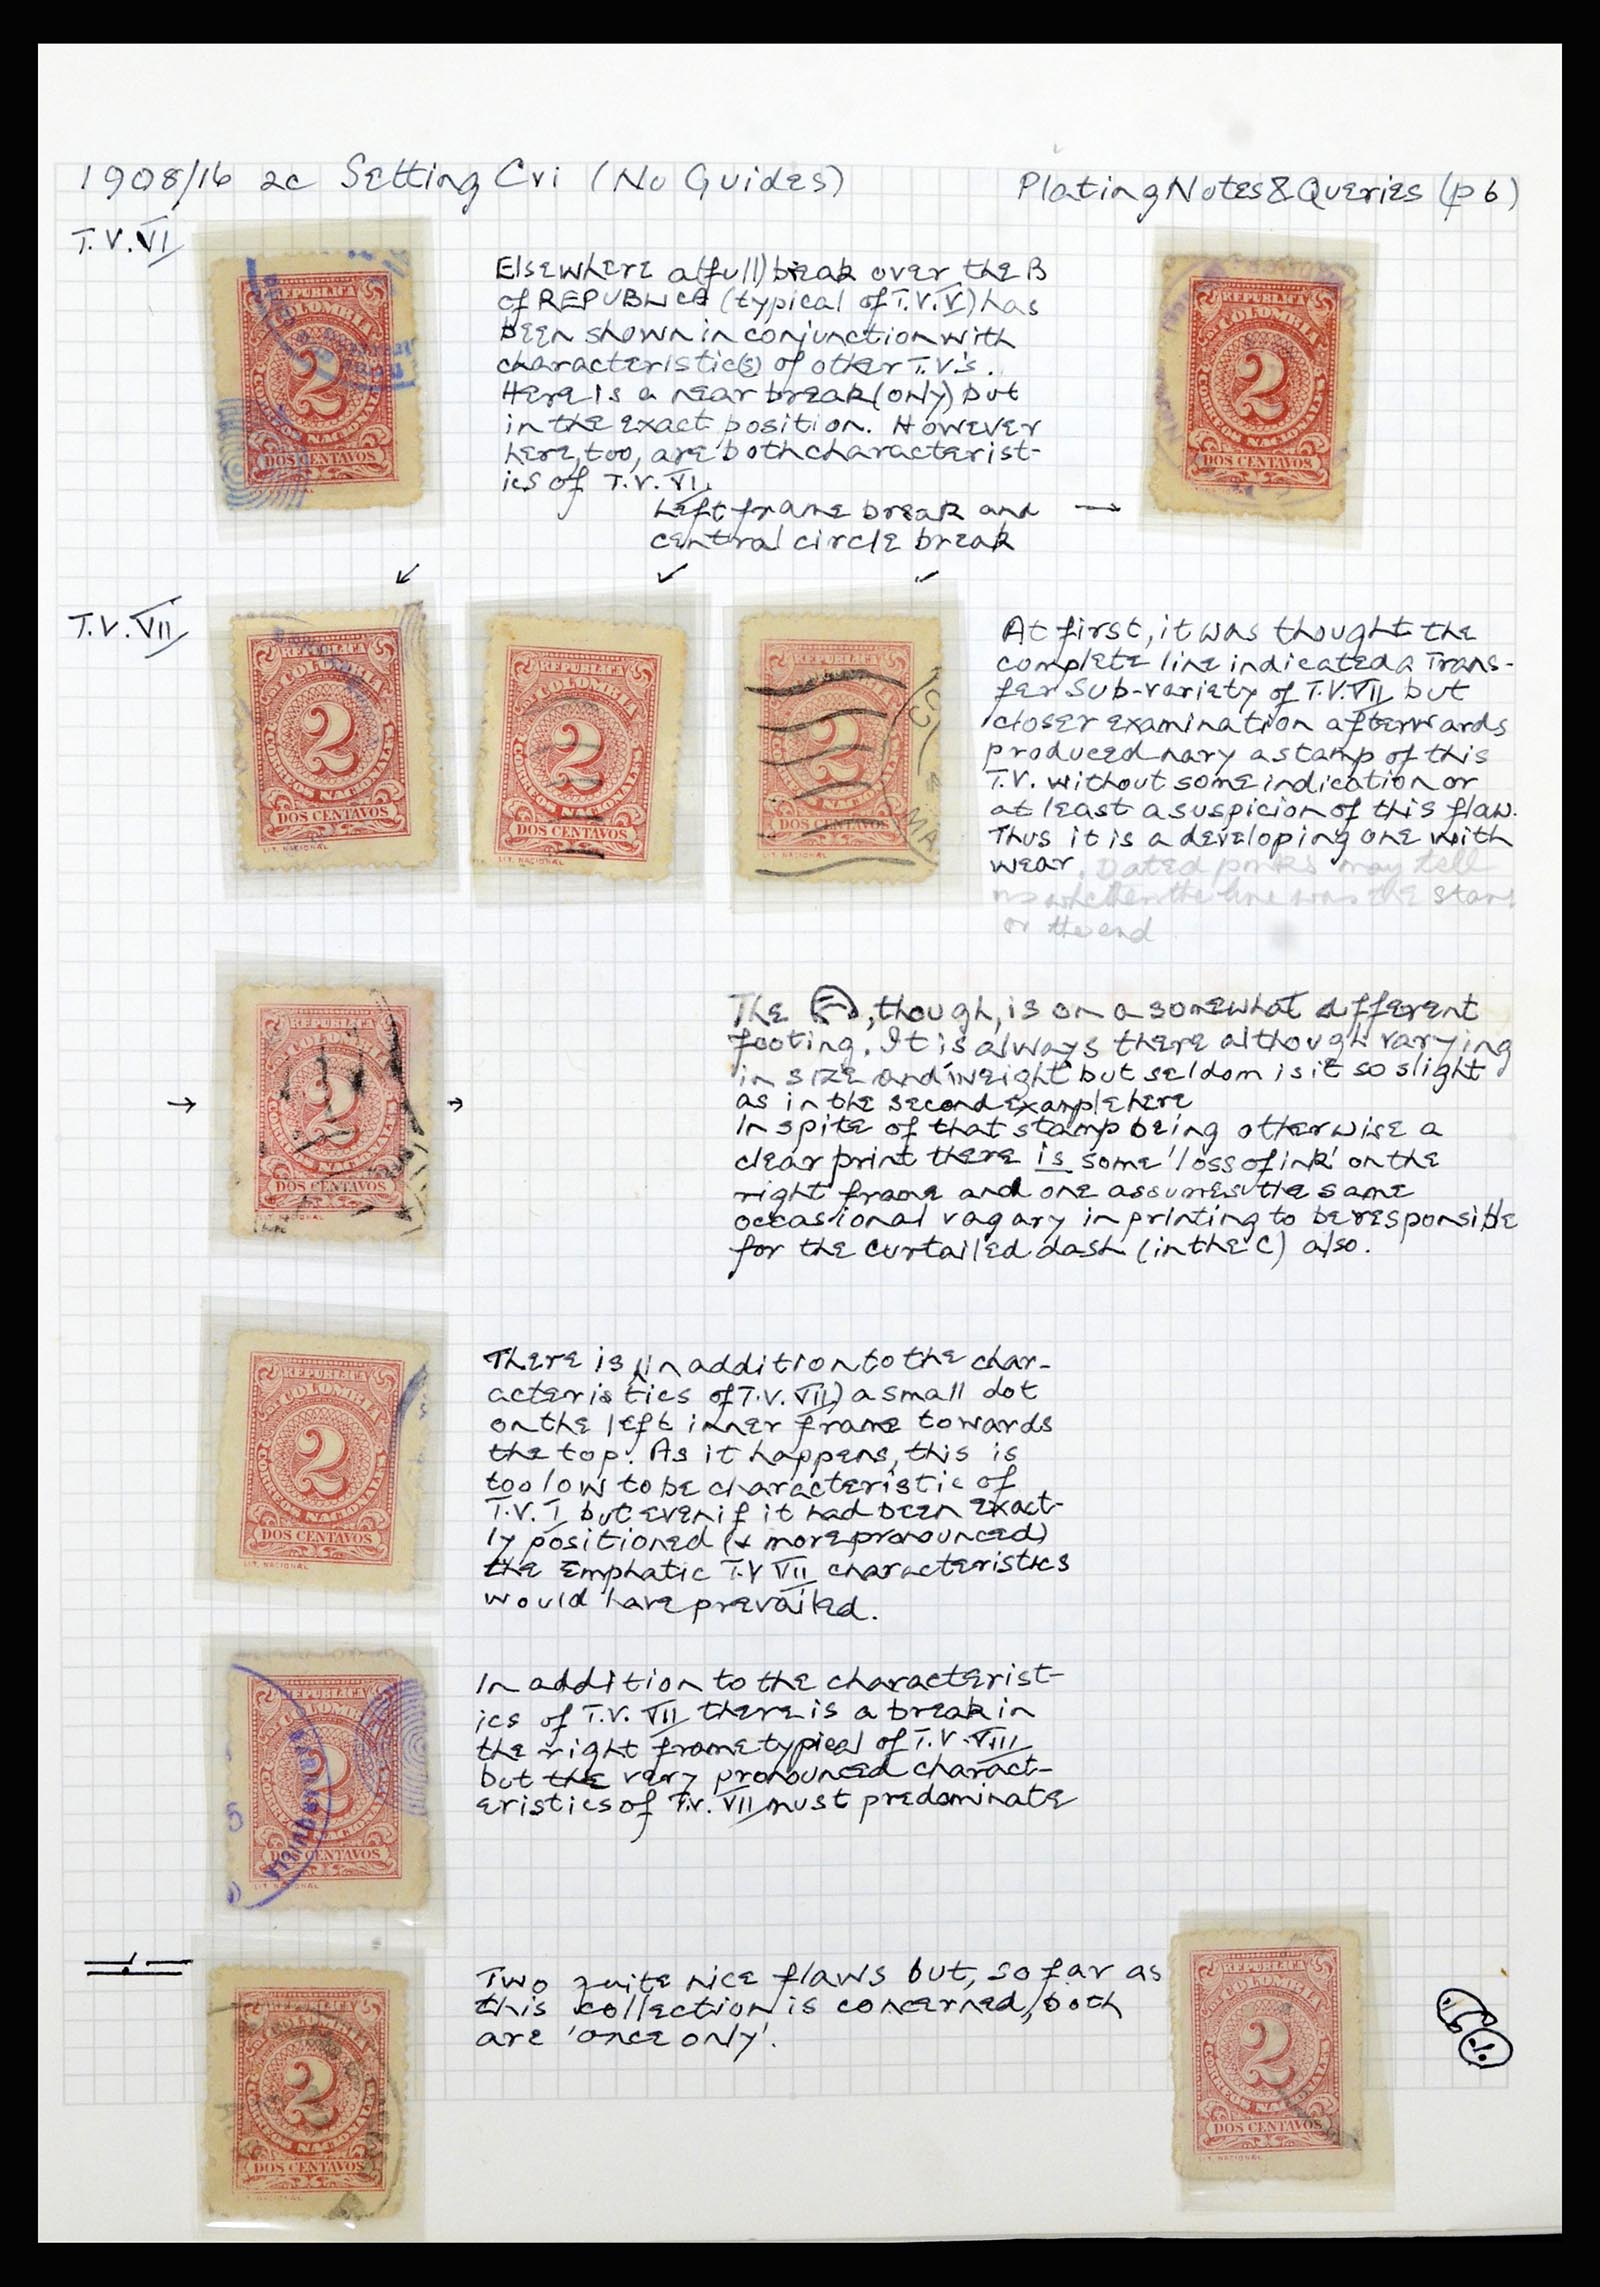 1908/16 2c Setting Cvi (No Guides)
Plating Notes & Queries (p 6)
T.V. VI
Elsewhere a (full) break over the B
of REPUBLICA (typical of T.V. V) has
been shown in conjunction with
characteristic(s) of other T.V.'s.
Here is a near break (only) but
in the exact position. However
here, too, are both characterist-
ics of T.V. VI.
Left frame break and →
central circle break
REPUBLICA
COLOMBIA
2
CORREOS NACIONALES
DOS CENTAVOS
REPUBLICA
DE COLOMBIA
2
CORREOS NACIONALES
DOS CENTAVOS
T.V. VII
REPUBLICA
DE COLOMBIA
2
CORREOS NACIONALES
DOS CENTAVOS
LIT. NACIONAL
REPUBLICA
DE COLOMBIA
2
CORREOS NACIONALES
DOS CENTAVOS
LIT. NACIONAL
REPUBLICA
2
DOS CENTAVOS
LIT. NACIONAL
MA
At first, it was thought the
complete line indicated a Trans-
fer Sub-variety of T.V. VII but
closer examination afterwards
produced nary a stamp of this
T.V. without some indication or
at least a suspicion of this flaw.
Thus it is a developing one with
wear. Dated pmks may tell
us whether the line was the start
or the end
→ →
REPUBLICA
DE COLOMBIA
2
DOS CENTAVOS
LIT. NACIONAL
The , though, is on a somewhat different
footing. It is always there although varying
in size and weight but seldom is it so slight
as in the second example here
In spite of that stamp being otherwise a
clear print there is some 'loss of ink' on the
right frame and one assumes the same
occasional vagary in printing to be responsible
for the curtailed dash (in the C) also.
REPUBLICA
DE COLOMBIA
2
CORREOS NACIONALES
DOS CENTAVOS
LIT. NACIONAL
There is (in addition to the char-
acteristics of T.V. VII) a small dot
on the left inner frame towards
the top. As it happens, this is
too low to be characteristic of
T.V. I but even if it had been exact-
ly positioned (& more pronounced)
the emphatic T.V VII characteristics
would have prevailed.
REPUBLICA
COLOMBIA
2
NACIONALES
DOS CENTAVOS
LIT. NACIONAL
BARRANQUILLA
5
In addition to the characterist-
ics of T.V. VII there is a break in
the right frame typical of T.V. VIII
but the very pronounced charact-
eristics of T.V. VII must predominate
REPUBLICA
DE COLOMBIA
2
CORREOS NACIONALES
DOS CENTAVOS
LIT. NACIONAL
Two quite nice flaws but, so far as
this collection is concerned, both
are 'once only'.
REPUBLICA
DE COLOMBIA
2
CORREOS NACIONALES
DOS CENTAVOS
LIT. NACIONAL